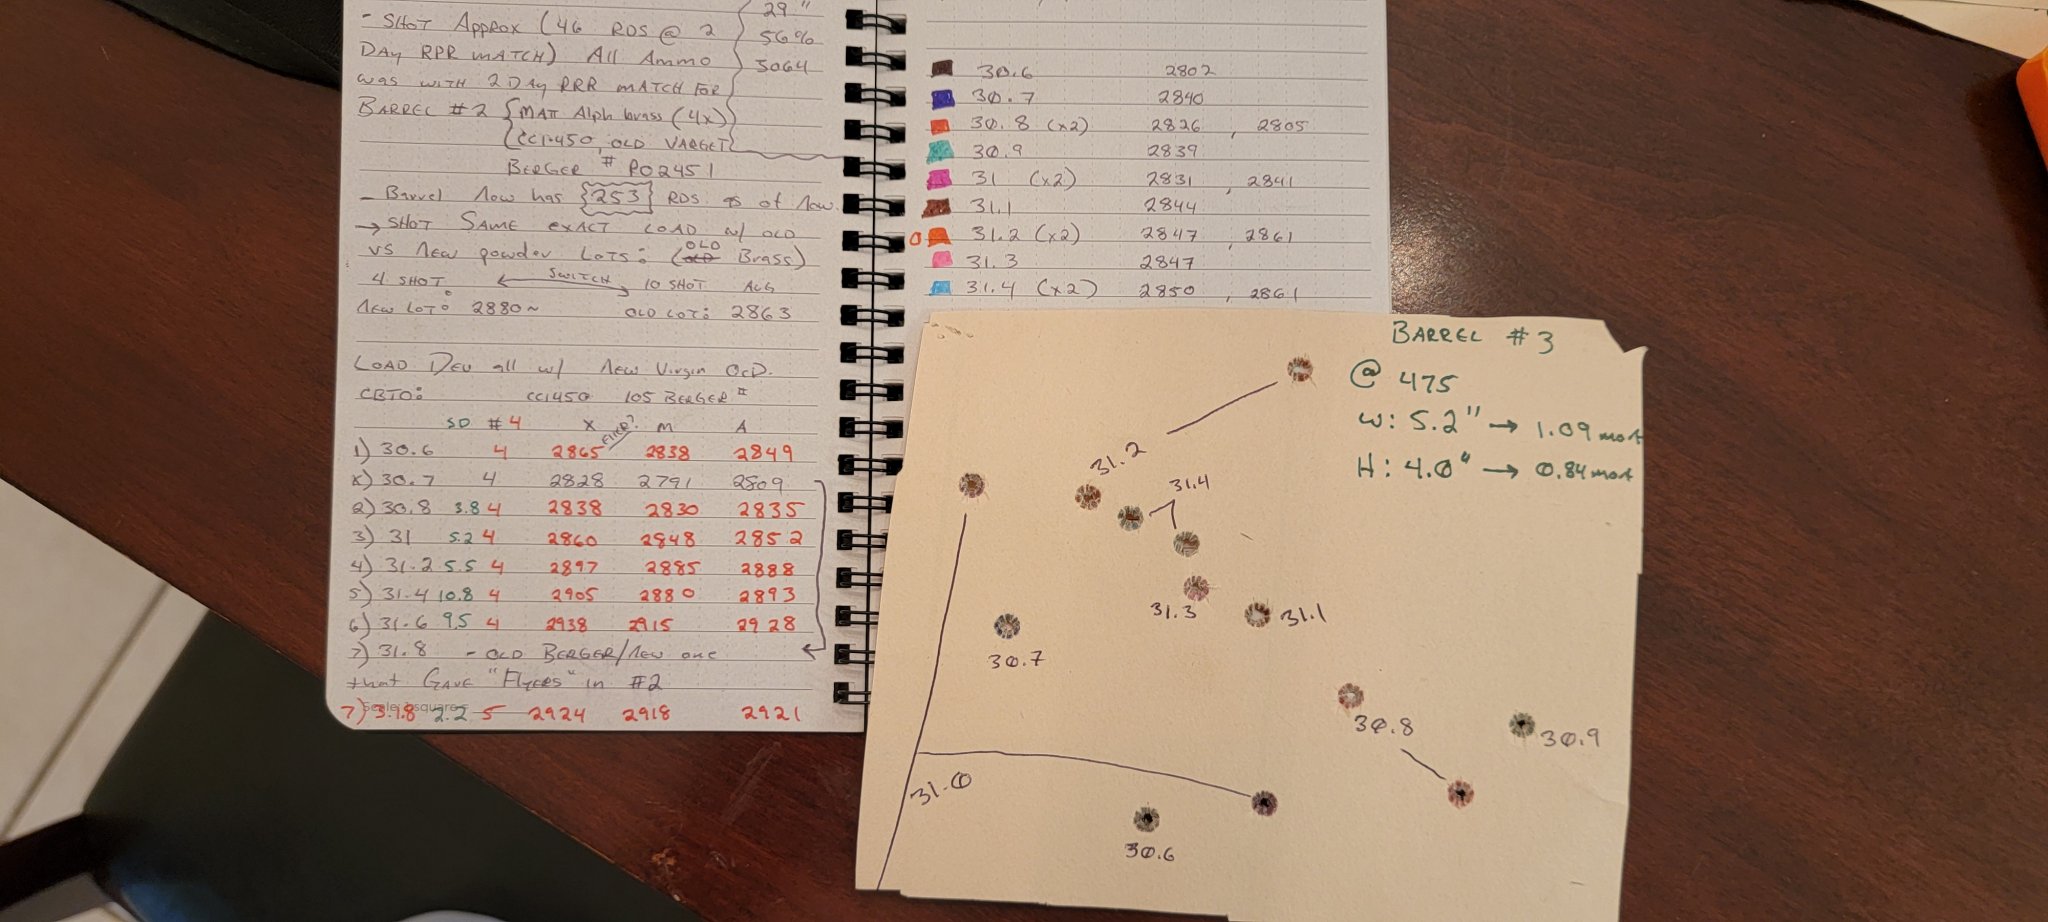 29"
- SHOT Approx (46 RDS @ 2
56%
DAY RPR MATCH) All Ammo
3064
was with 2 DAY PRR MATCH FOR
BARREL #2 {MATT Alph brass (4x)
{CCI-450, OLD VARGET
BERGER # P02451
- Barrel Now has {253} RDS as of Now.
→ SHOT SAME exACT LOAD w/ OLD
VS New powder LOTS: (OLD Brass)
4 SHOT ← SWITCH → 10 SHOT AVG
New LOT: 2880~ OLD LOT: 2863
LOAD Dev all w/ New Virgin OCD.
CBTO: CCI450 105 BERGER #
SD #4 X FLIER? M A
1) 30.6 4 2865 2838 2849
X) 30.7 4 2828 2791 2809
2) 30.8 3.8 4 2838 2830 2835
3) 31 5.2 4 2860 2848 2852
4) 31.2 5.5 4 2897 2885 2888
5) 31.4 10.8 4 2905 2880 2893
6) 31.6 9.5 4 2938 2915 2928
7) 31.8 - OLD BERGER/New one
that GAVE "Flyers" in #2
7) 31.8 2.2 5 2924 2918 2921
30.6 2802
30.7 2840
30.8 (x2) 2826, 2805
30.9 2839
31 (x2) 2831, 2841
31.1 2844
31.2 (x2) 2847, 2861
31.3 2847
31.4 (x2) 2850, 2861
BARREL #3
@ 475
W: 5.2" → 1.09 moa
H: 4.0" → 0.84 moa
31.2
31.4
31.3
31.1
30.7
30.8
30.9
31.0
30.6